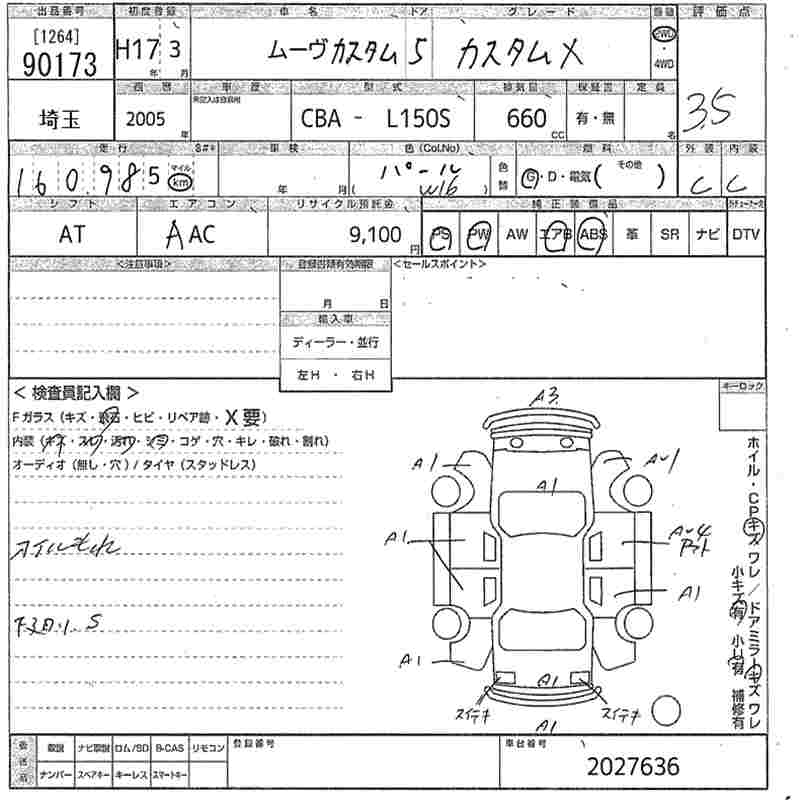 出品番号 初度登録 車名 ドア グレード 評価点
[1264]
90173
H17 3
年 月
ムーヴカスタム 5 カスタムX
2WD
・
4WD
3.5
西暦 車歴 型式 排気量 保証書 定員
埼玉
2005 年
未記入は自家用
CBA - L150S
660 CC
有・無
名
走行 車検 色(Col.No) 燃料 外装 内装
160,985
マイル
km
年 月
パール
W16
色替
G・D・電気( その他 )
C C
シフト エアコン リサイクル預託金 純正装備品
AT
AAC
9,100 円
PS PW AW エアB ABS 革 SR ナビ DTV
<注意事項> 登録書類有効期限 <セールスポイント>
月 日
輸入車
ディーラー・並行
左H ・ 右H
< 検査員記入欄 >
キーロック
Fガラス (キズ・飛石・ヒビ・リペア跡・X要)
内装 (キズ・スレ・汚れ・シミ・コゲ・穴・キレ・破れ・割れ)
オーディオ (無し・穴) / タイヤ (スタッドレス)
オイルもれ
下廻り S
A3
A1
A1
AU1
A1
AU4
アト
A1
A1
A1
スイテキ
スイテキ
A1
ホイル・CPキズ ワレ / ドアミラーキズ ワレ
小キズ有 小U有 補修有
後送品
取説 ナビ取説 ロム/SD B-CAS リモコン
ナンバー スペアキー キーレス スマートキー
登録番号
車台番号
2027636